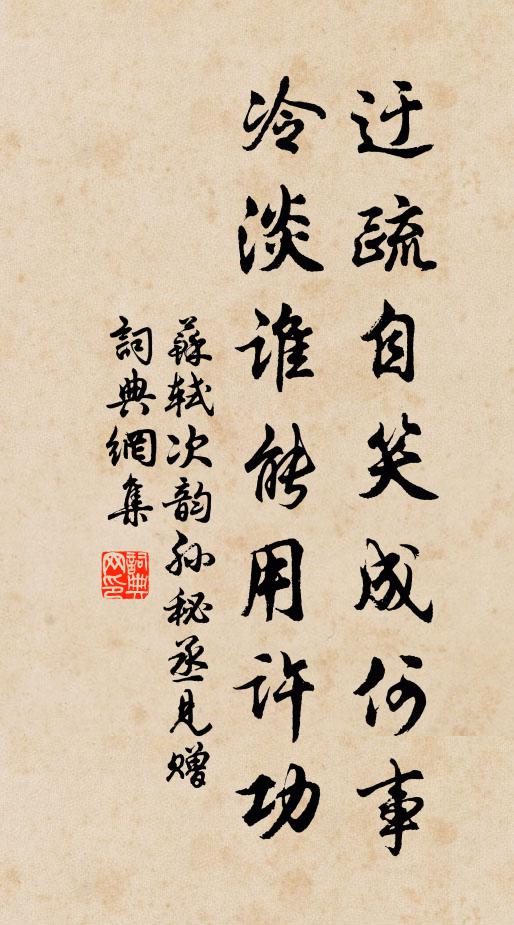 迂疏自笑成何事
冷淡谁能用许功
蘇軾次韵孙秘丞見赠
詞典網集
詞典網印